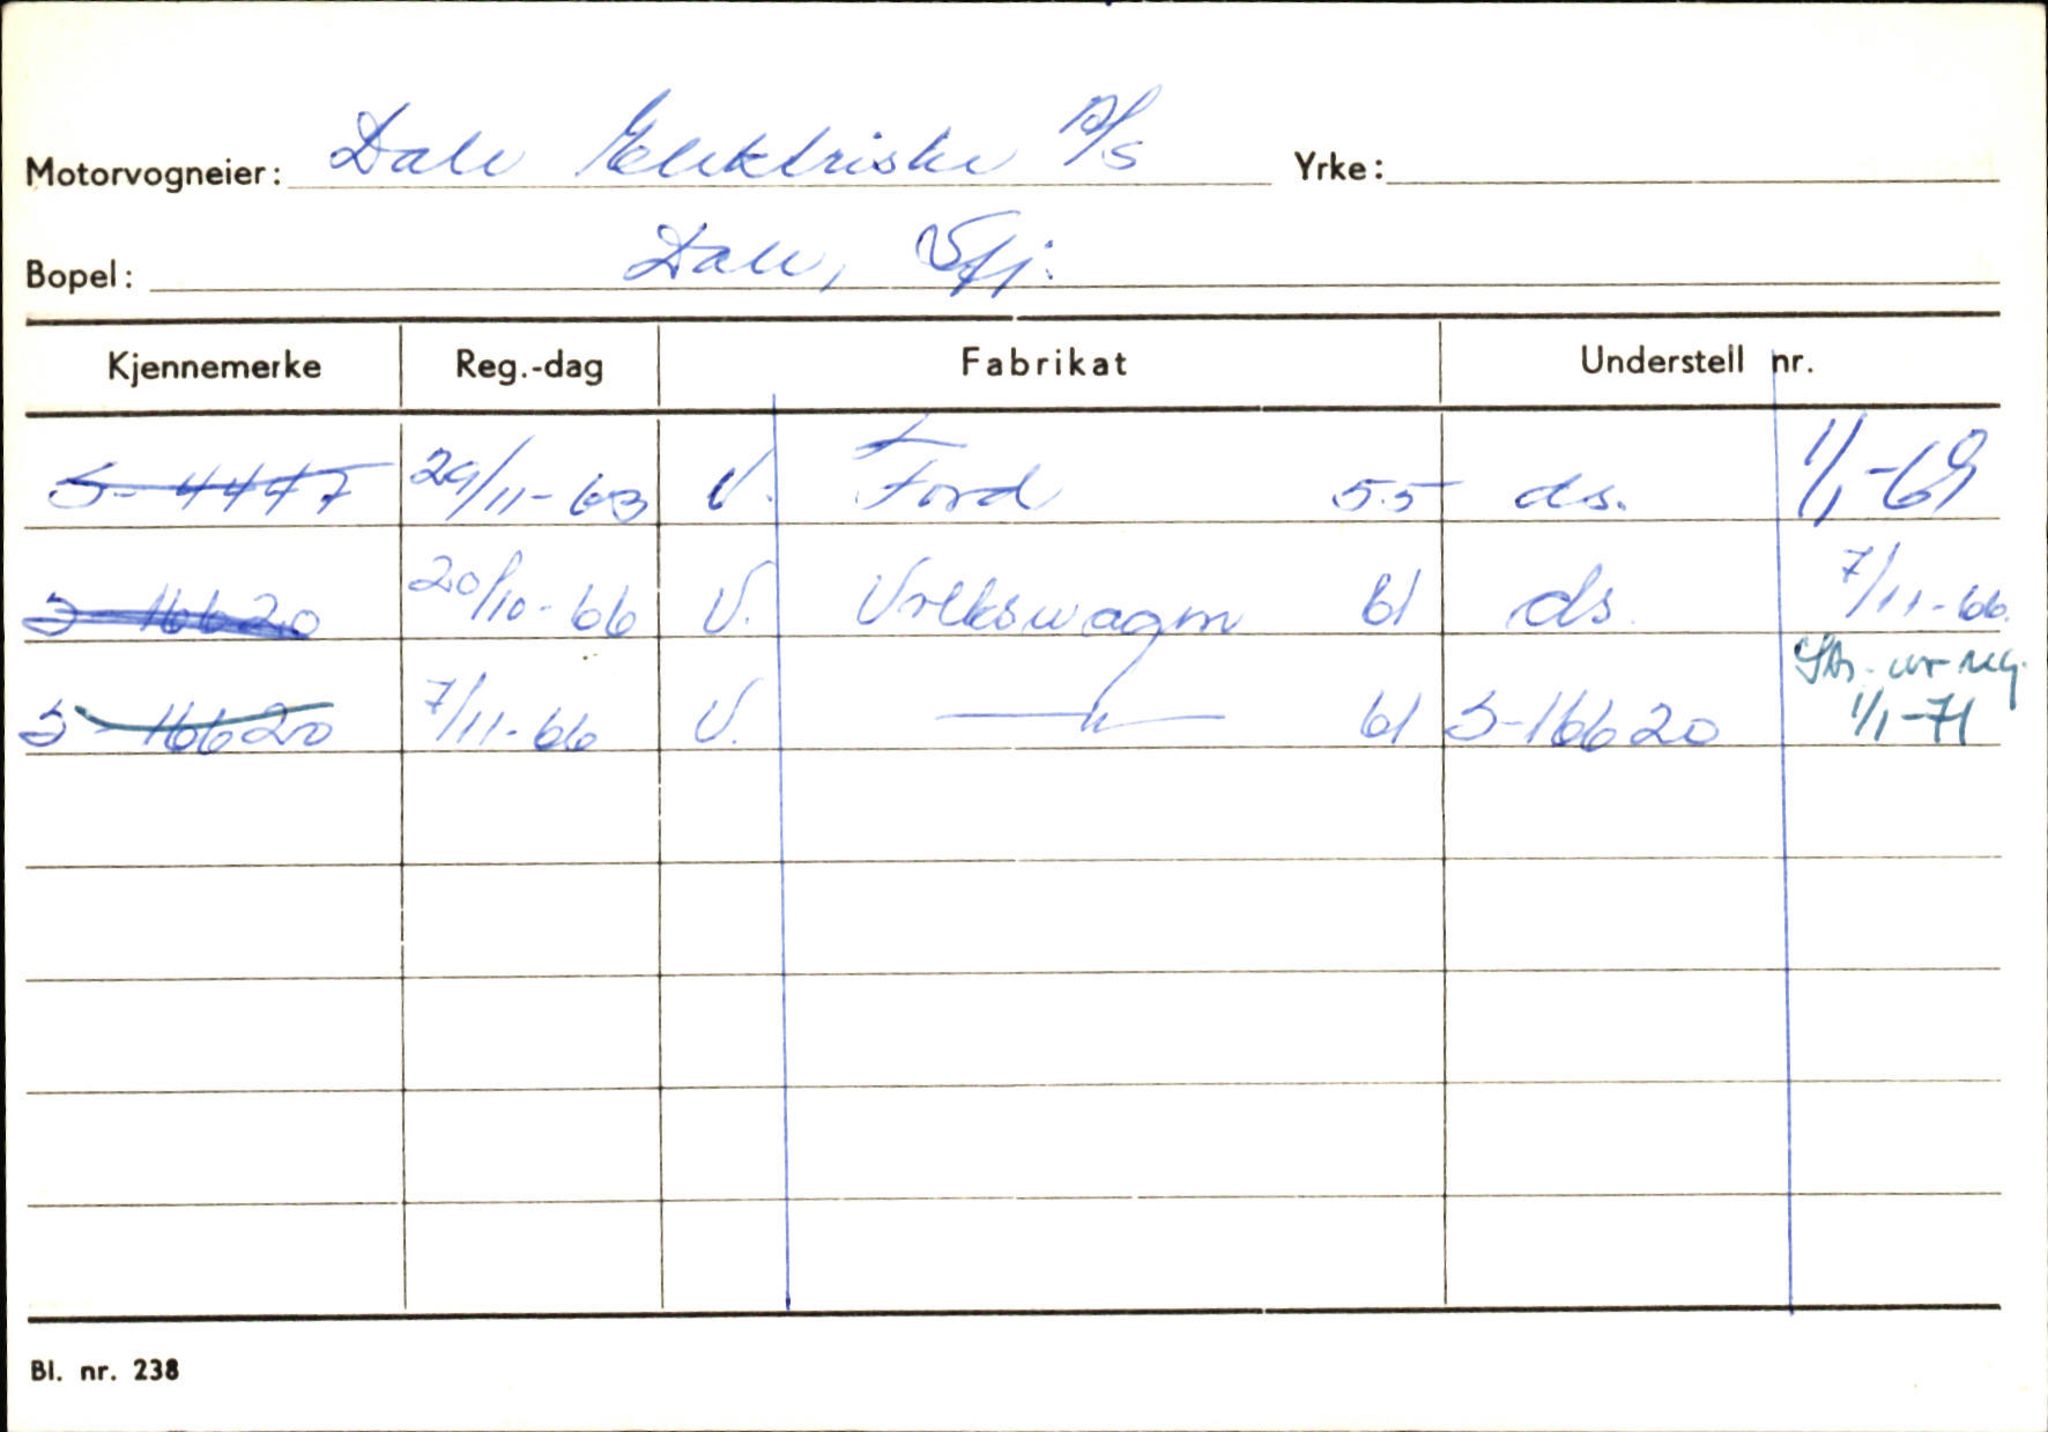 Motorvogneier: Dale Elektriske A/S Yrke:
Bopel: Dale, Sfj.
Kjennemerke Reg.-dag Fabrikat Understell nr.
S-4447 29/11-63 V. Ford 55 ds. 1/1-69
S-16620 20/10-66 V. Volkswagen 61 ds. 7/11-66.
reg.
S-16620 7/11-66 V. —"— 61 S-16620 1/1-71
Bl. nr. 238